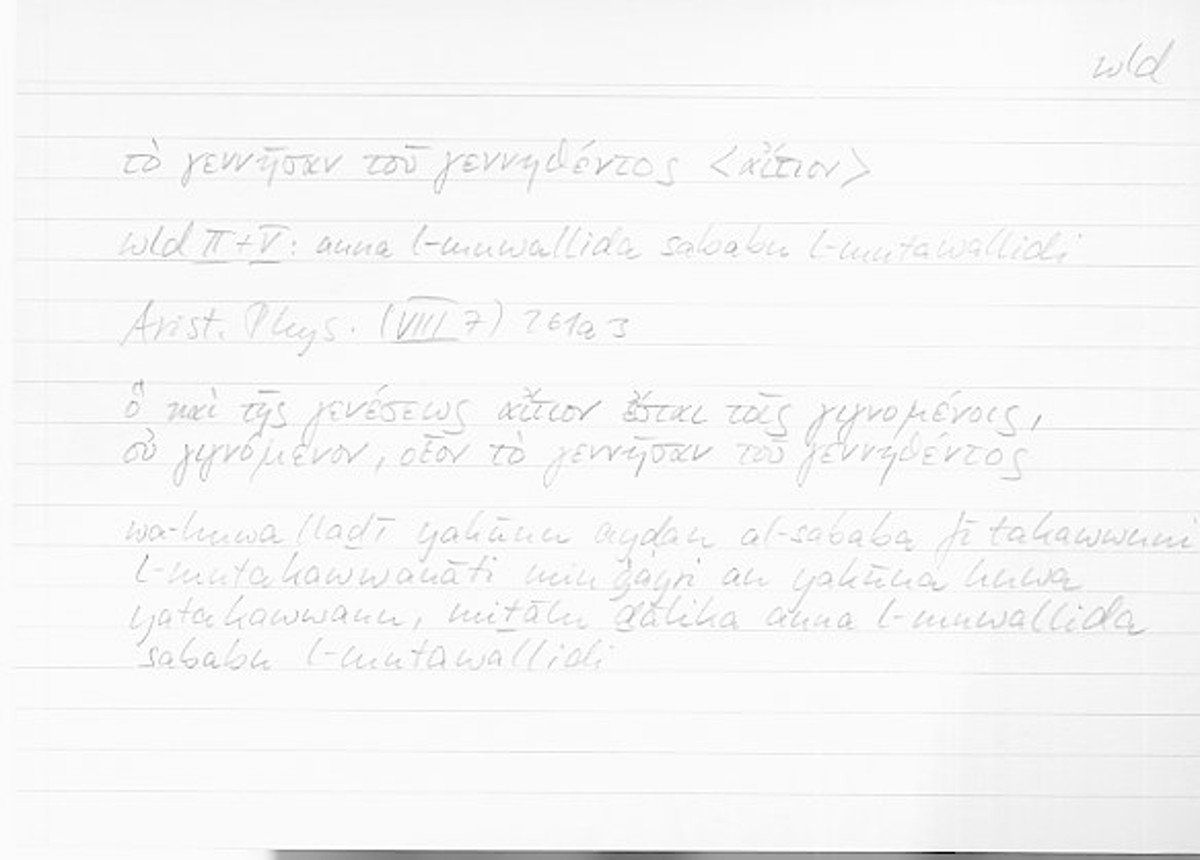 wld
τὸ γεννῆσαν τοῦ γεννηθέντος <αἴτιον>
wld II + V: anna l-muwallida sababu l-mutawallidi
Arist. Phys. (VIII 7) 261a3
ὃ καὶ τῆς γενέσεως αἴτιον ἔσται τοῖς γιγνομένοις,
οὐ γιγνόμενον, οἷον τὸ γεννῆσαν τοῦ γεννηθέντος
wa-huwa lladī yakūnu ayḍan al-sababa fī takawwuni
l-mutakawwanāti min ġayri an yakūna huwa
yatakawwanu, miṯālu ḏālika anna l-muwallida
sababu l-mutawallidi